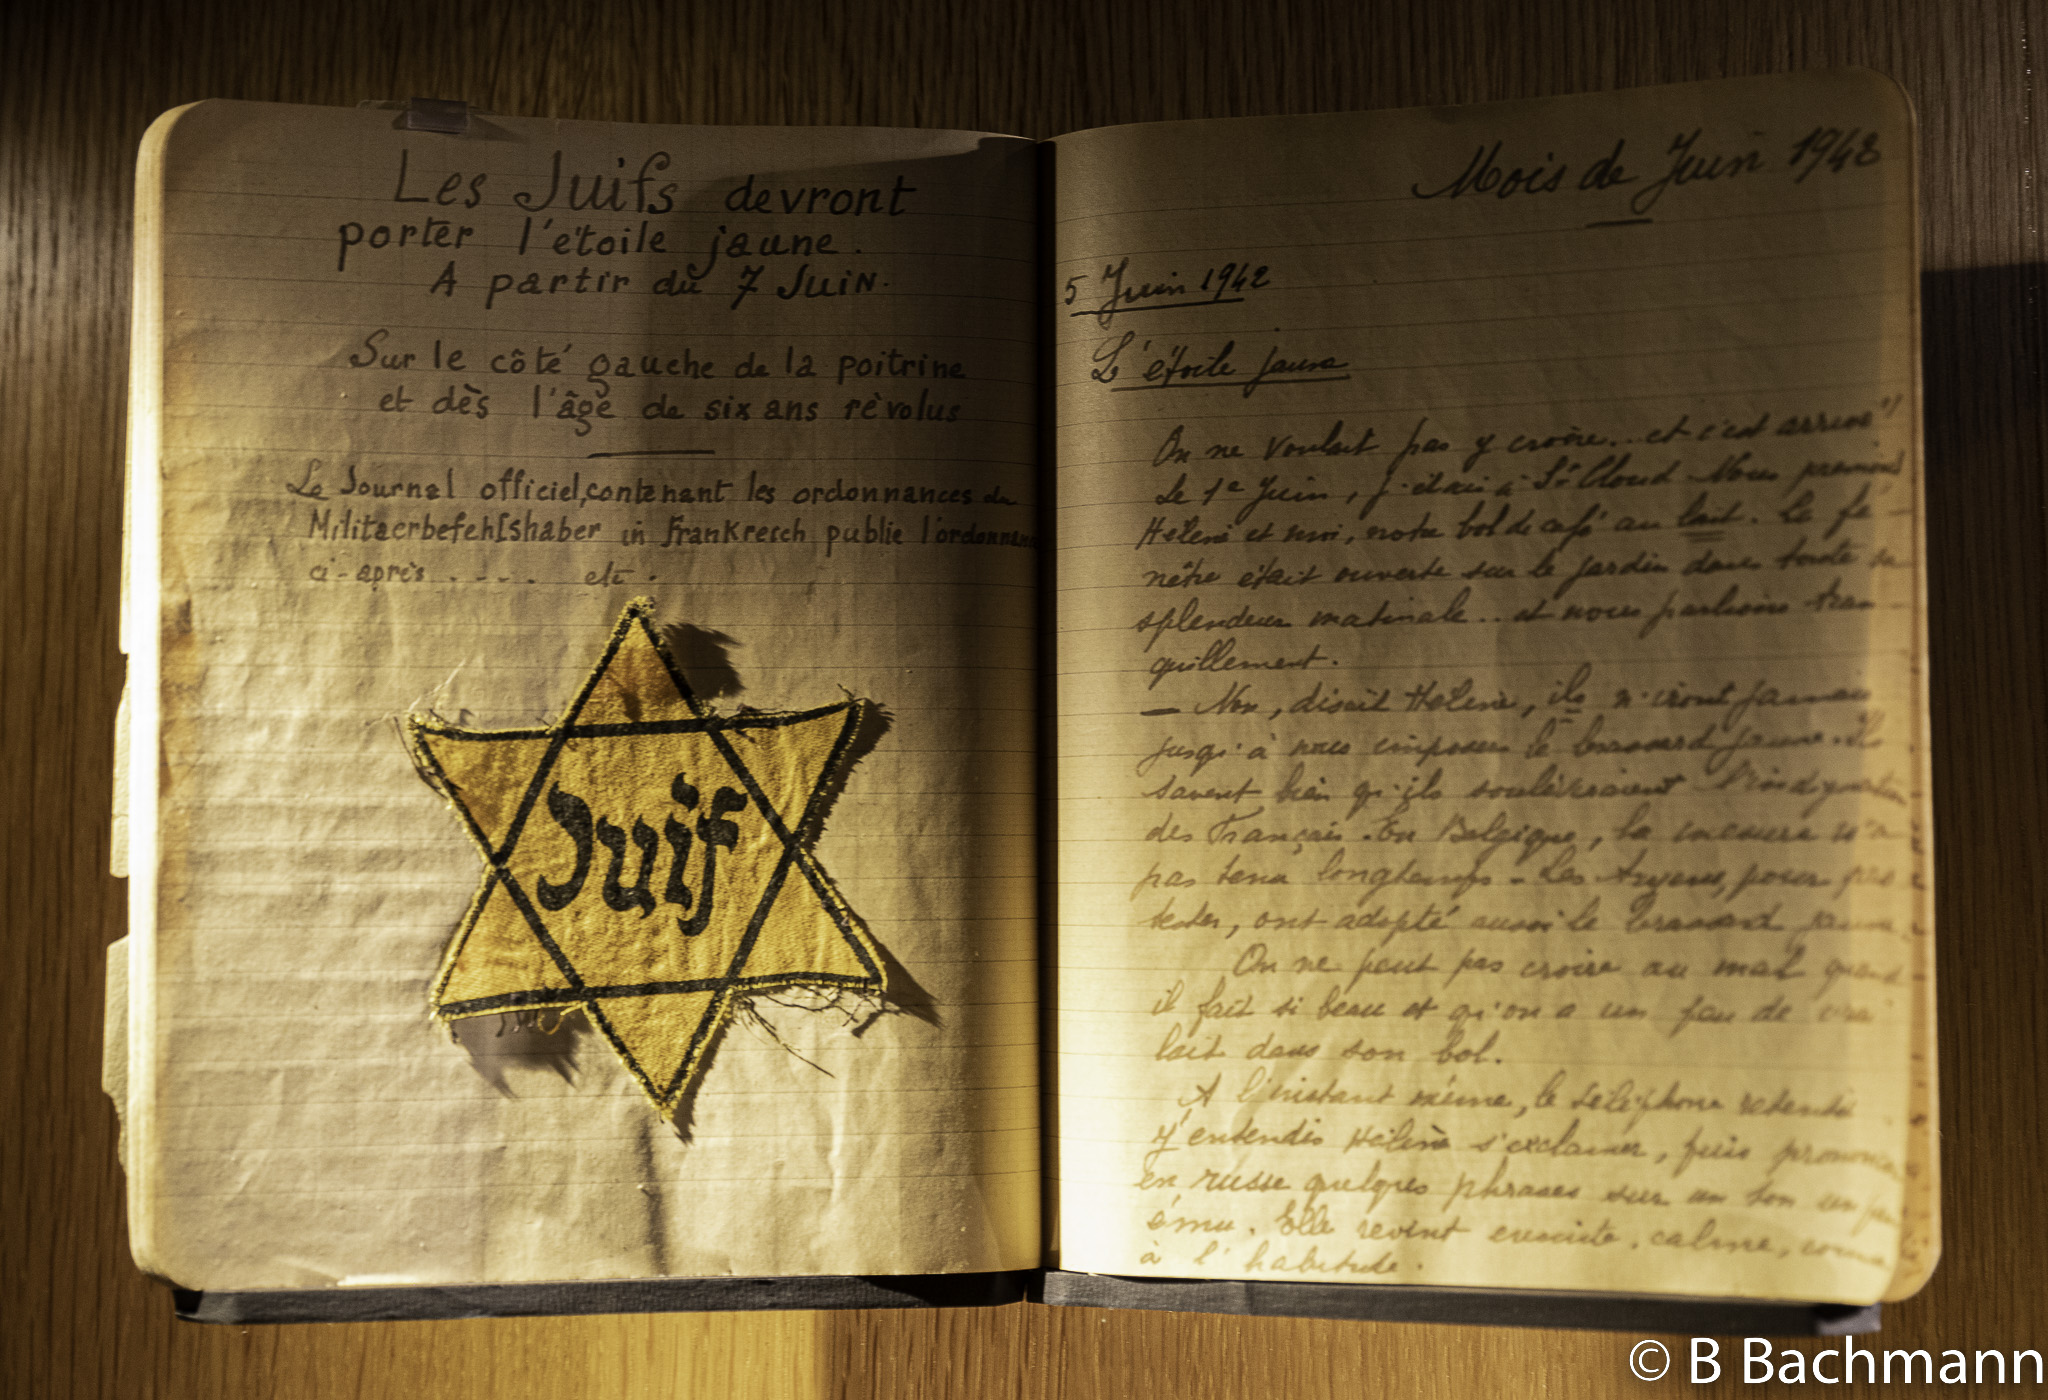 Les Juifs devront
porter l'étoile jaune.
A partir du 7 Juin.
Sur le côté gauche de la poitrine
et dès l'âge de six ans révolus
Le Journal officiel, contenant les ordonnances du
Militaerbefehlshaber in Frankreich publie l'ordonnance
ci-après . - - . etc.
Juif
Mois de Juin 1942
5 Juin 1942
L'étoile jaune
On ne voulait pas y croire... et c'est arrivé!
Le 1er Juin, j'étais à St Cloud. Nous prenions
Hélène et moi, notre bol de café au lait. La fe-
nêtre était ouverte sur le jardin dans toute sa
splendeur matinale... et nous parlions tran-
quillement.
— Non, disait Hélène, ils n'iront jamais
jusqu'à nous imposer le brassard jaune. Ils
savent bien qu'ils soulèveraient l'indignation
des Français. En Belgique, la mesure n'a
pas tenu longtemps - Les Aryens, pour pro-
tester, ont adopté aussi le brassard jaune.
On ne peut pas croire au mal quand
il fait si beau et qu'on a un peu de vrai
lait dans son bol.
A l'instant même, le téléphone retentit
J'entendis Hélène s'exclamer, puis prononcer
en russe quelques phrases sur un ton un peu
ému. Elle revint ensuite, calme, comme
à l'habitude.
© B Bachmann